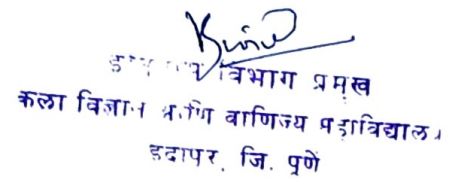 विभाग प्रमुख
कला विज्ञान आणि वाणिज्य महाविद्यालय
इंदापूर, जि. पुणे